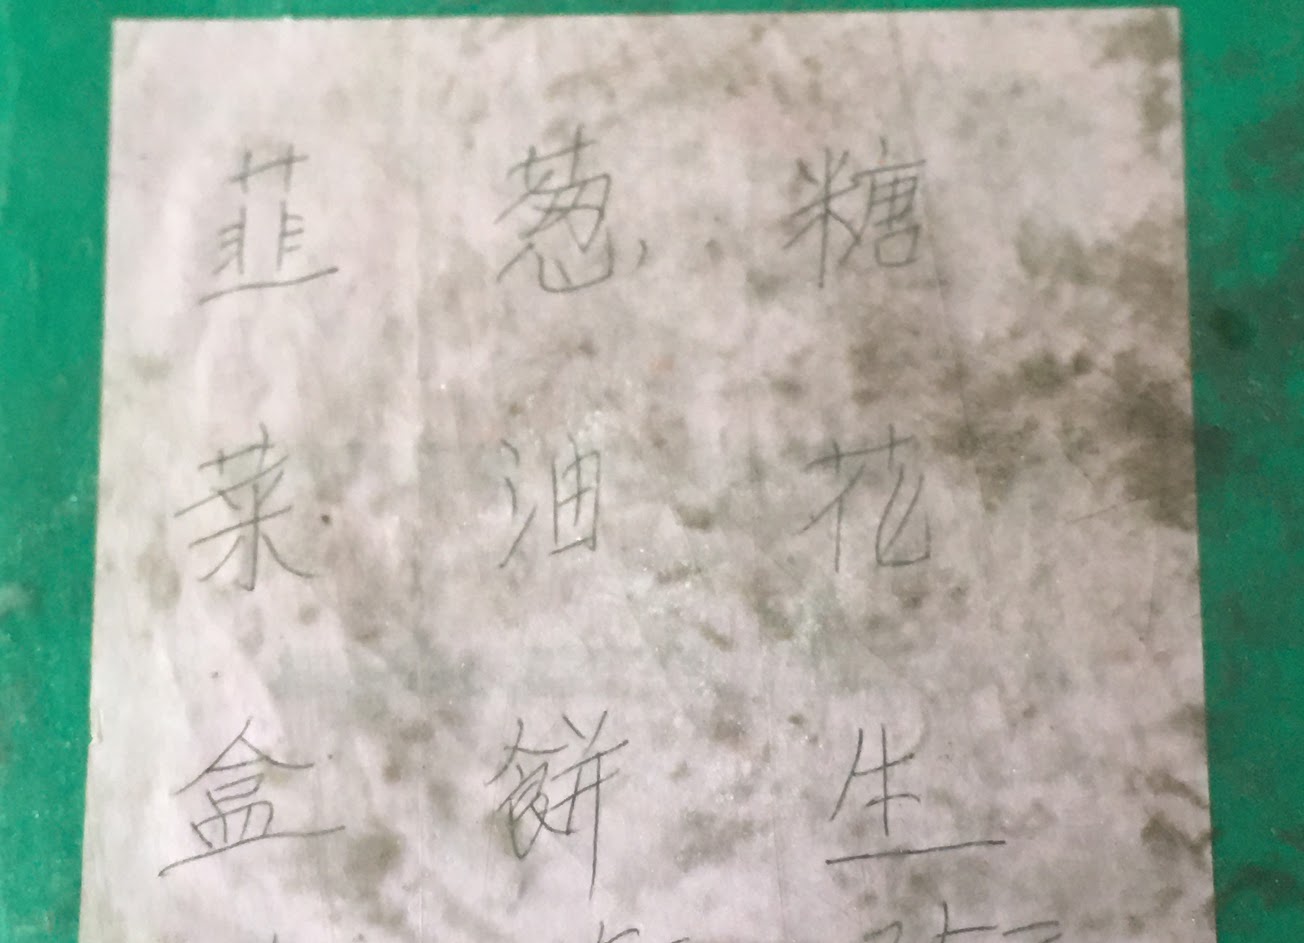 韮菜盒
葱油餅
糖花生